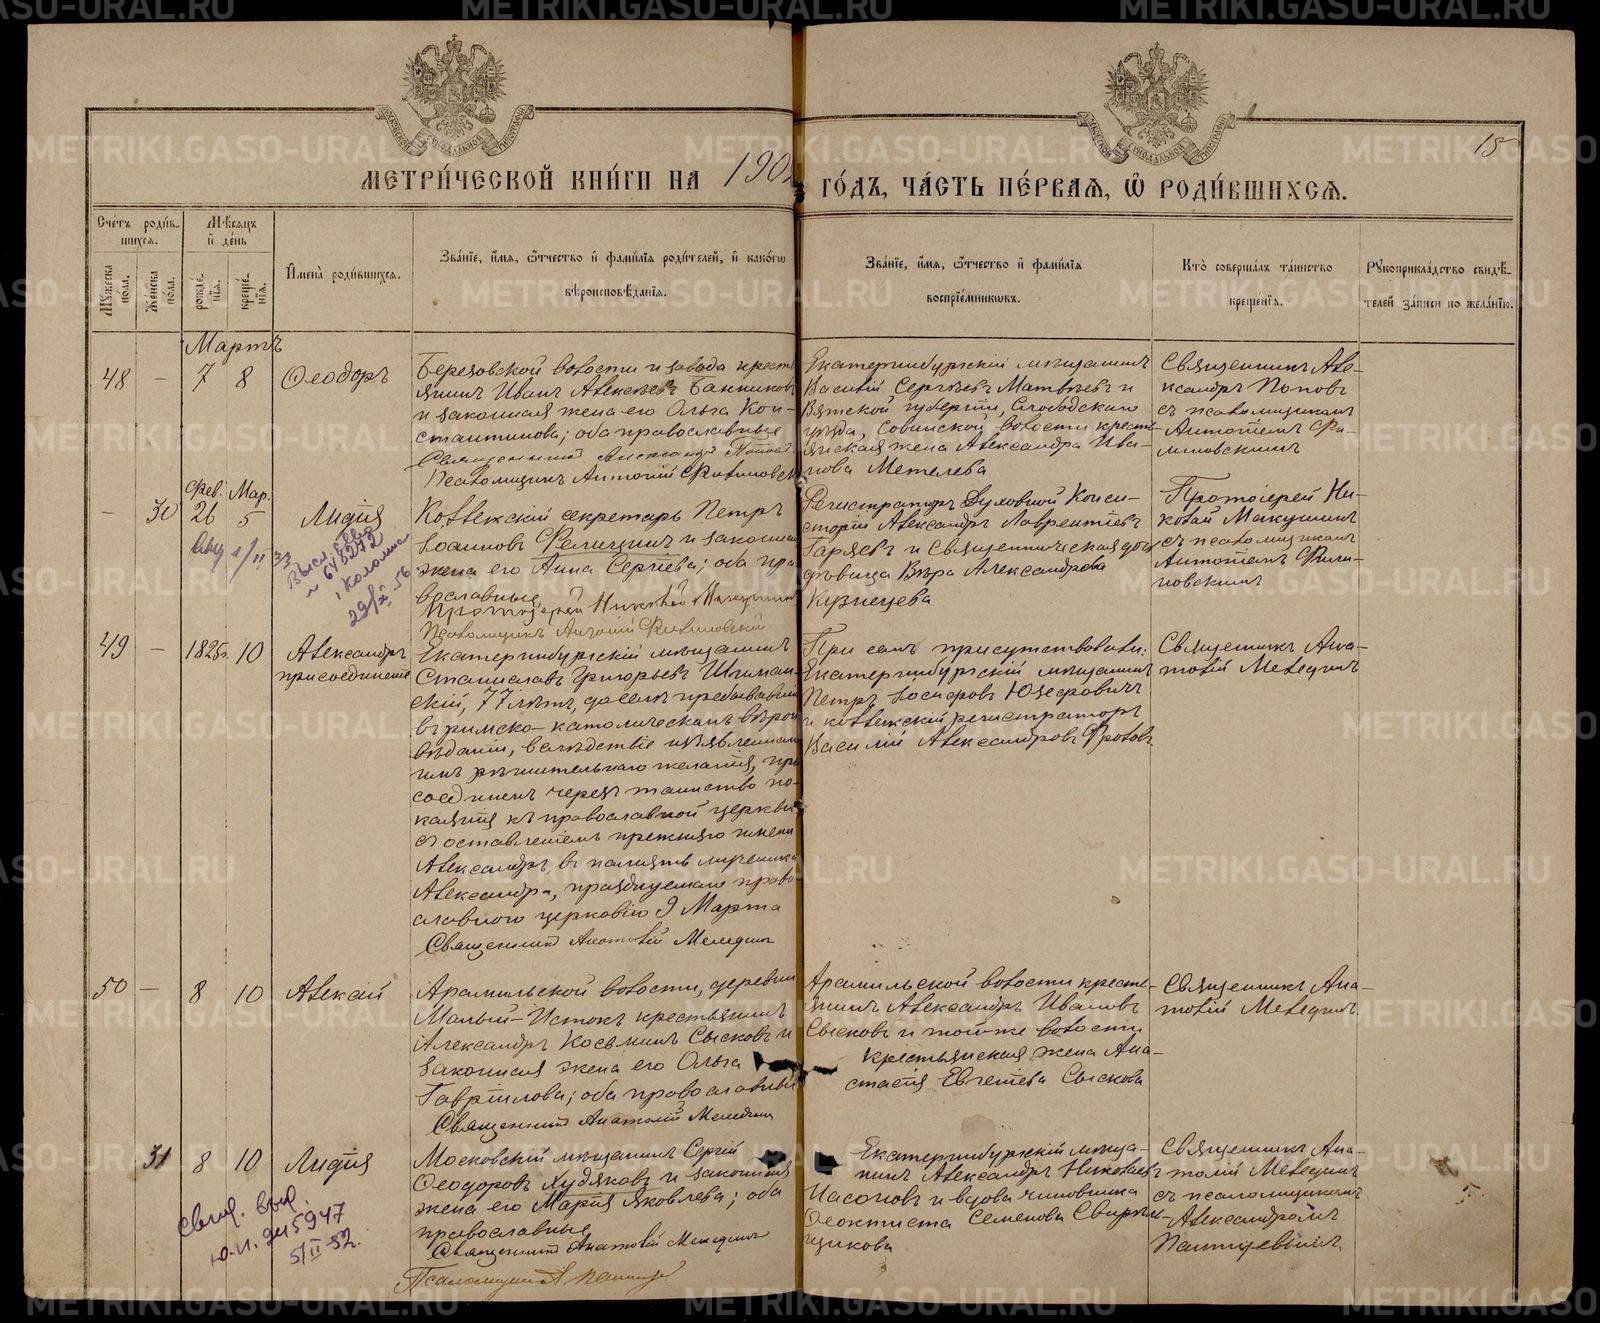 МЕТРИ́ЧЕСКОЙ КНИ́ГИ НА 190
ГО́ДЪ, ЧА́СТЬ ПЕ́РВАѦ, Ѡ҆ РОДИ́ВШИХСѦ.
15
Сче́тъ роди́в-
шихся.
Мѣсяцъ
и҆ де́нь
Мꙋ́жеска
по́ла.
Же́нска
по́ла.
рожде́-
нїѧ.
креще́-
нїѧ.
И҆мена̀ роди́вшихсѧ.
Зва́нїе, и҆́мѧ, ѻ҆́тчество и҆ фами́лїѧ роди́телей, и҆ како́гѡ
вѣроисповѣ́данїѧ.
Зва́нїе, и҆́мѧ, ѻ҆́тчество и҆ фами́лїѧ
воспрїе́мникѡвъ.
Кто̀ соверша́лъ та́инство
креще́нїѧ.
Рꙋкоприкла́дство свидѣ́-
телей за́писи по жела́нїю.
Мартъ
48 — 7 8 Ѳеодоръ
Березовской волости и завода крестъ
янинъ Иванъ Алексѣевъ Банниковъ
и законная жена его Ольга Кон-
стантинова; оба православные
Священникъ Александръ Поповъ
Псаломщикъ Антоній Филиповскій
Екатеринбургскій мѣщанинъ
Василій Сергѣевъ Матвѣевъ и
Вятской губерніи, Слободскаго
уѣзда, Совинской волости кресть-
янская жена Александра Ива-
нова Метелева
Священникъ Але-
ксандръ Поповъ
съ псаломщикомъ
Антоніемъ Фи-
липовскимъ
Фев. Мар.
— 30 26 5 Лидія
Коллежскій секретарь Петръ
Іоанновъ Фелицинъ и законная
жена его Анна Сергіева; оба пра
вославные
Протоіерей Николай Макушинъ
Псаломщикъ Антоній Филиповскій
Регистраторъ Духовной Конси-
сторіи Александръ Лаврентіевъ
Гаряевъ и Священническая до
дѣвица Вѣра Александрова
Кузнецева
Протоіерей Ни-
колай Макушинъ
съ псаломщикомъ
Антоніемъ Фили-
повскимъ
29/XI 56
49 — 1825г. 10 Александръ
присоединеніе
Екатеринбургскій мѣщанинъ
Станиславъ Григорьевъ
скій, 77 лѣтъ, доселѣ пребывавшій
въ римско-католическомъ вѣроис
вѣданіи, вслѣдствіе изъявленнаго
имъ рѣшительнаго желанія, при
соединенъ черезъ таинство по-
каянія къ православной церкви
съ оставленіемъ прежняго имени
Александръ, въ память мученика
Александра, празднуемаго право-
славною церковію 9 Марта
Священникъ Анатолій Мелединъ
При семъ присутствовали:
Екатеринбургскій мѣщанинъ
Петръ Іосифовъ Юзефовичъ
и коллежскій регистраторъ
Василій Александровъ Фроловъ
Священникъ Ана-
толій Мелединъ
50 — 8 10 Алексій
Арамильской волости, деревни
Малый-Истокъ крестьянинъ
Александръ Косьминъ Сысковъ и
законная жена его Ольга
Гавріилова; оба православные
Священникъ Анатолій Мелединъ
Арамильской волости кресть-
янинъ Александръ Ивановъ
Сысковъ и той же волости
крестьянская жена Ана-
стасія Евгеніева Сыскова
Священникъ Ана-
толій Мелединъ.
31 8 10 Лидія
Московскій мѣщанинъ Сергій
Ѳеодоровъ Худяковъ и законная
жена его Марія Яковлева; оба
православные
Священникъ Анатолій Мелединъ
Псаломщикъ А.
Екатеринбургскій мѣща-
нинъ Александръ Николаевъ
Насоновъ и вдова чиновника
Ѳеоктиста Семенова Свирѣль-
щикова
Священникъ Ана-
толій Мелединъ
съ псаломщикомъ
Александромъ
свид. выд.
5/II 52.